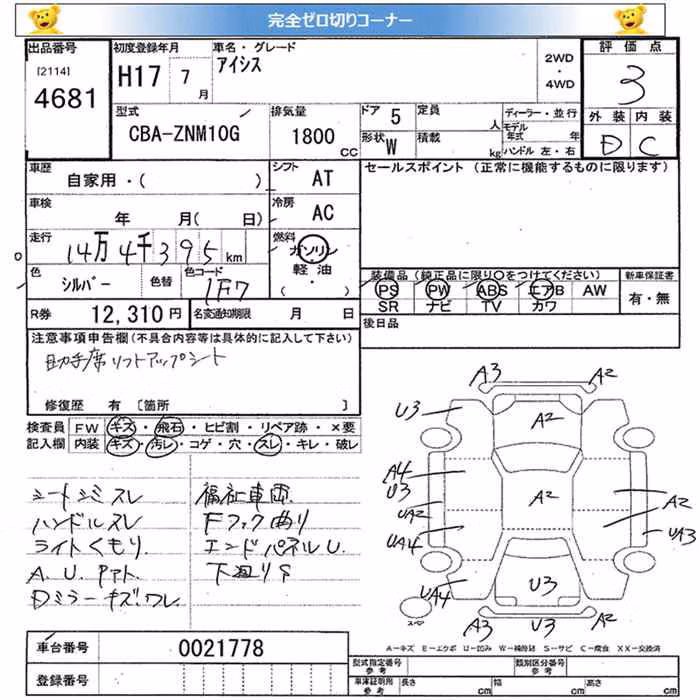 完全ゼロ切りコーナー
出品番号 初度登録年月 車名・グレード 評価点
[2114] H17 7月 アイシス 2WD・4WD 3
4681
型式 排気量 ドア 5 定員 人 ディーラー・並行 外装 内装
CBA-ZNM10G 1800CC 形状 W 積載 kg モデル年式 年 D C
ハンドル 左・右
車歴 シフト セールスポイント (正常に機能するものに限ります)
自家用・( ) AT
車検 冷房
年 月( 日) AC
走行 燃料
14万4千395km ガソリン
色 シルバー 色替 色コード 1F7 軽油 ・( )
装備品 (純正品に限り○をつけてください) 新車保証書
PS PW ABS エアB AW 有・無
SR ナビ TV カワ
R券 12,310円 名変通知期限 月 日
後日品
注意事項申告欄(不具合内容等は具体的に記入して下さい)
助手席リフトアップシート
修復歴 有 [箇所 ]
検査員 FW キズ・飛石・ヒビ割・リペア跡・×要
記入欄 内装 キズ・汚レ・コゲ・穴・スレ・キレ・破レ
シートシミスレ 福祉車両
ハンドルスレ Fフック曲り
ライトくもり. エンドパネルU.
A.U.アト. 下廻りS
Dミラーキズ.ワレ.
A3 A2
U3 A2
A4
U3 A2 A2
UA2 UA3
UA4
UA4 U3
スペア A3 U3 A2
A－キズ E－エクボ U－凹み W－補修跡 S－サビ C－腐食 XX－交換済
車台番号 0021778
登録番号
型式指定番号 参考 類別区分番号 参考
車庫証明用 参考 長さ cm 幅 cm 高さ cm